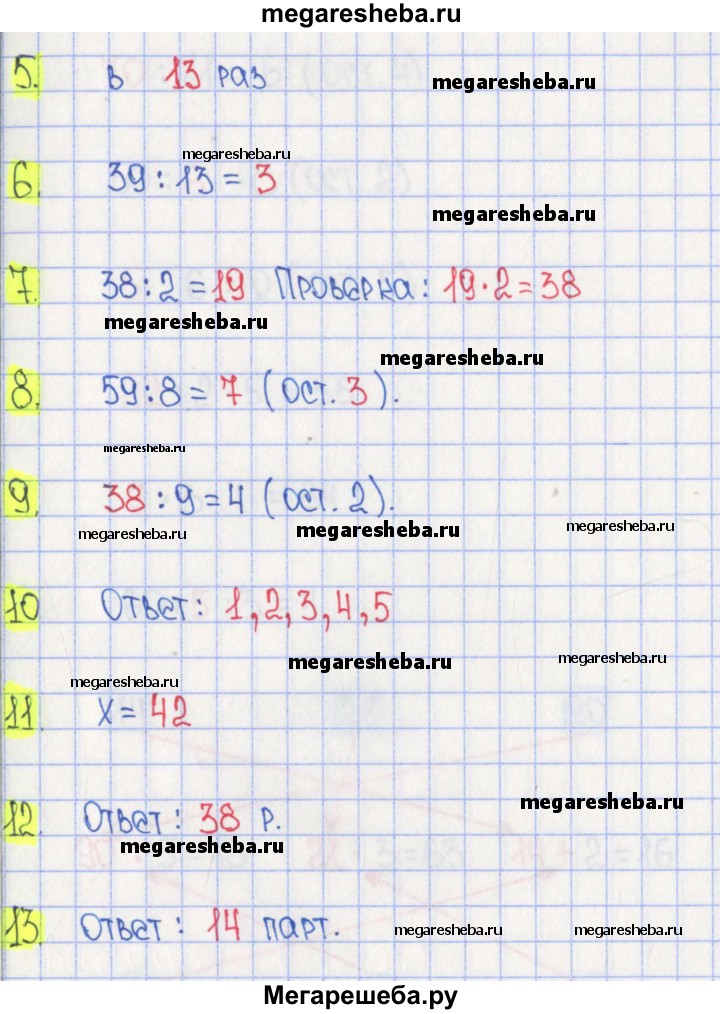 megaresheba.ru
5. в 13 раз megaresheba.ru
megaresheba.ru
6. 39 : 13 = 3
megaresheba.ru
7. 38 : 2 = 19 Проверка : 19 · 2 = 38
megaresheba.ru
megaresheba.ru
8. 59 : 8 = 7 (ост. 3).
megaresheba.ru
9. 38 : 9 = 4 (ост. 2).
megaresheba.ru megaresheba.ru megaresheba.ru
10 Ответ : 1, 2, 3, 4, 5
megaresheba.ru megaresheba.ru
megaresheba.ru
11. х = 42
megaresheba.ru
12. Ответ : 38 р.
megaresheba.ru
13. Ответ : 14 парт. megaresheba.ru megaresheba.ru
Мегарешеба.ру